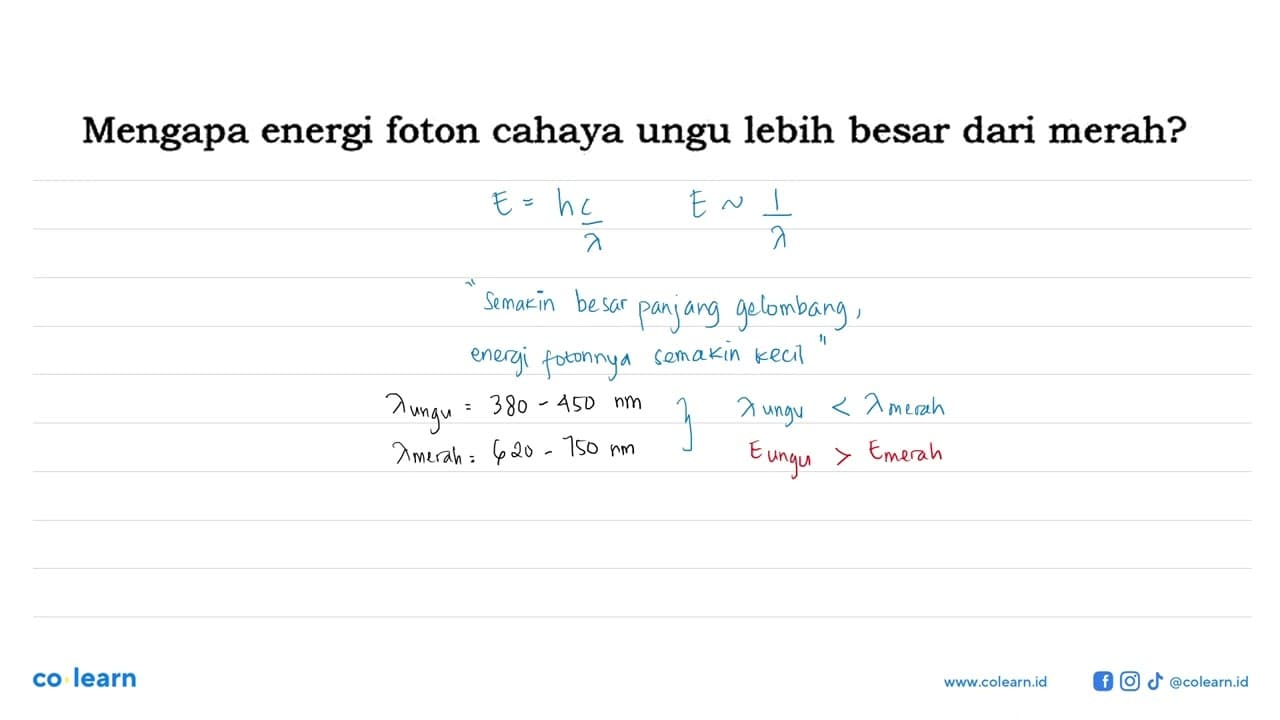 Mengapa energi foton cahaya ungu lebih besar dari merah?
E = h c/λ E ~ 1/λ
"Semakin besar panjang gelombang,
energi fotonnya semakin kecil"
λungu = 380 - 450 nm } λungu < λmerah
λmerah = 620 - 750 nm Eungu > Emerah
co learn www.colearn.id @colearn.id